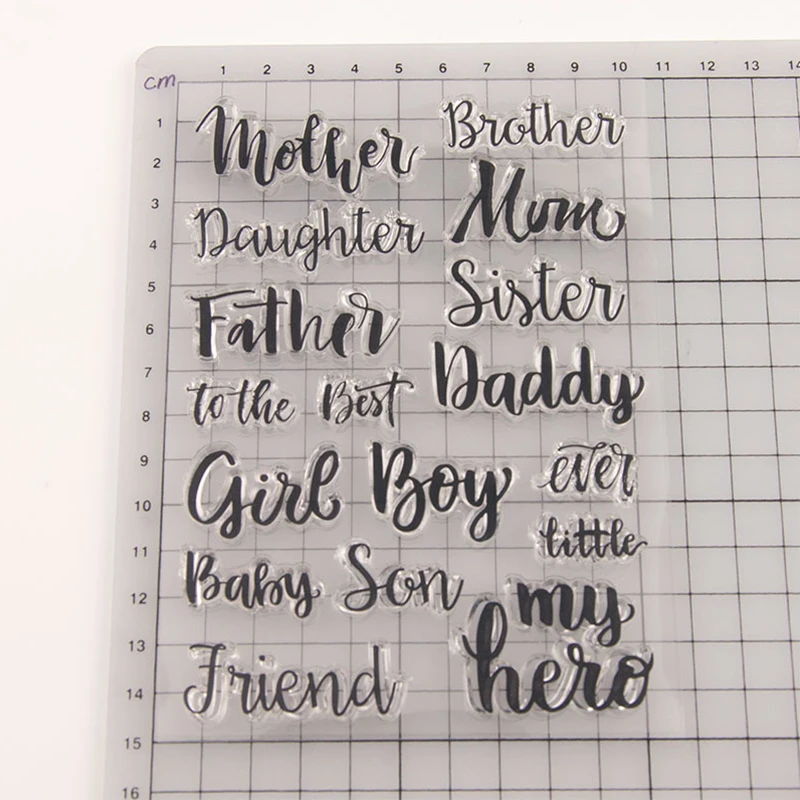 cm 1 2 3 4 5 6 7 8 9 10 11 12 13 14
1
2
3
4
5
6
7
8
9
10
11
12
13
14
15
16
Mother
Daughter
Father
to the Best
Girl Boy
Baby Son
Friend
Brother
Mom
Sister
Daddy
ever
little
my
hero